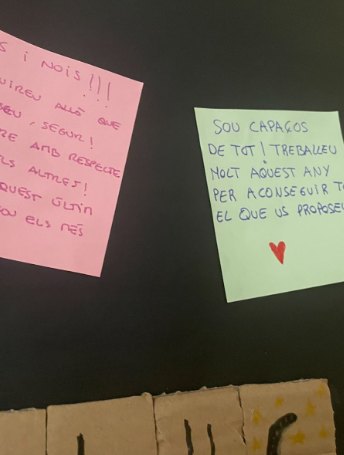 S I NOIS!!!
UIREU ALLÒ QUE
SEU, SEGUR!
RE AMB RESPECTE
LS ALTRES!
QUEST ÚLTIM
SOU ELS MÉS
SOU CAPAÇOS
DE TOT! TREBALLEU
MOLT AQUEST ANY
PER ACONSEGUIR T
EL QUE US PROPOSEU